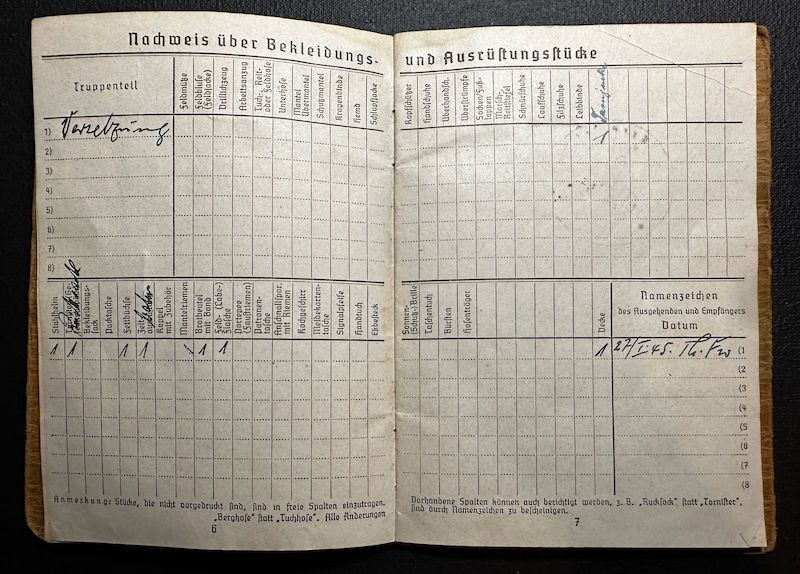 Nachweis über Bekleidungs-
Truppenteil
Feldmütze
Feldbluse (Feldjacke)
Drillichzeug
Arbeitsanzug
Tuch-, Reit- oder Feldhose
Unterhose
Mantel Übermantel
Schutzmantel
Kragenbinde
Hemd
Schlupfjacke
1) Versetzung
2)
3)
4)
5)
6)
7)
8)
Stahlhelm
Bekleidungssack
Packtasche
Fettbüchse
Koppel mit Zubehör
Mantelriemen
Brotbeutel mit Band
Feld-(Labe-) Flasche
Portepee (Faustriemen)
Patronentasche
Umschnallspor. mit Riemen
Kochgeschirr
Meldekartentasche
Signalpfeife
Handtuch
Eßbesteck
1 1 1 1 1 1
Anmerkung: Stücke, die nicht vorgedruckt sind, sind in freie Spalten einzutragen.
„Berghose" statt „Tuchhose". Alle Änderungen
6
und Ausrüstungsstücke
Kopfschützer
Handschuhe
Überhandsch.
Überstrümpfe
Socken/Fußlappen
Marsch-Reitstiefel
Schnürschuhe
Laufschuhe
Filzschuhe
Leibbinde
1
Sonnen-(Schutz-) Brille
Taschentuch
Bürsten
Hosenträger
Decke
Namenzeichen
des Ausgehenden und Empfängers
Datum
1 27/I.45. (1
(2
(3
(4
(5
(6
(7
(8
Vorhandene Spalten können auch berichtigt werden, z. B. „Rucksack" statt „Tornister",
sind durch Namenzeichen zu bescheinigen.
7